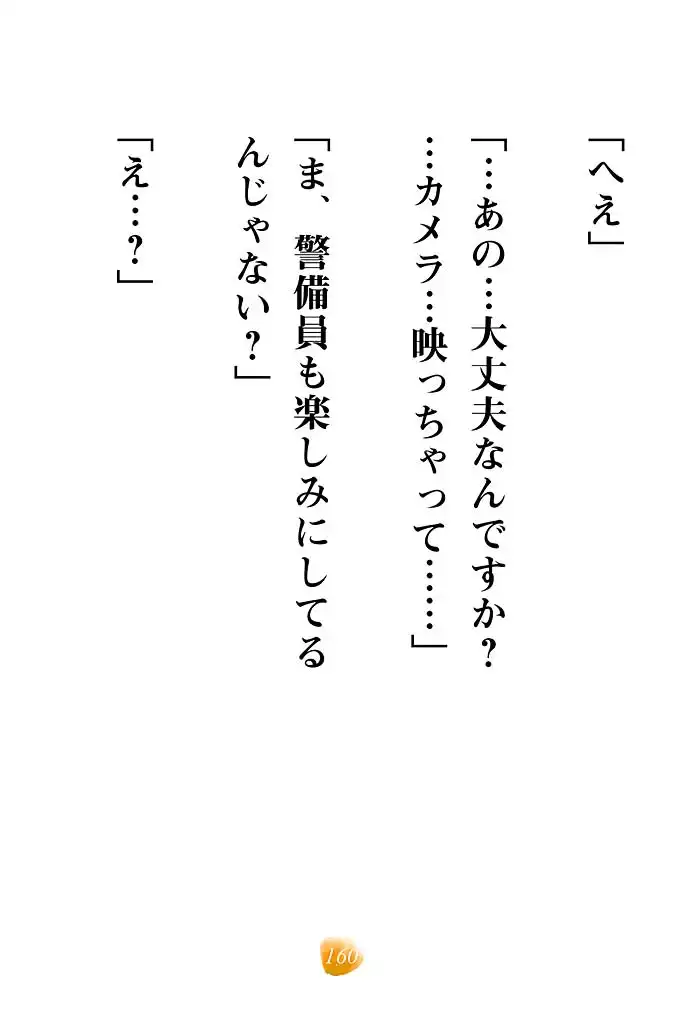 「へえ」
「…あの…大丈夫なんですか？
…カメラ…映っちゃって……」
「ま、警備員も楽しみにしてる
んじゃない？」
「え…？」
160